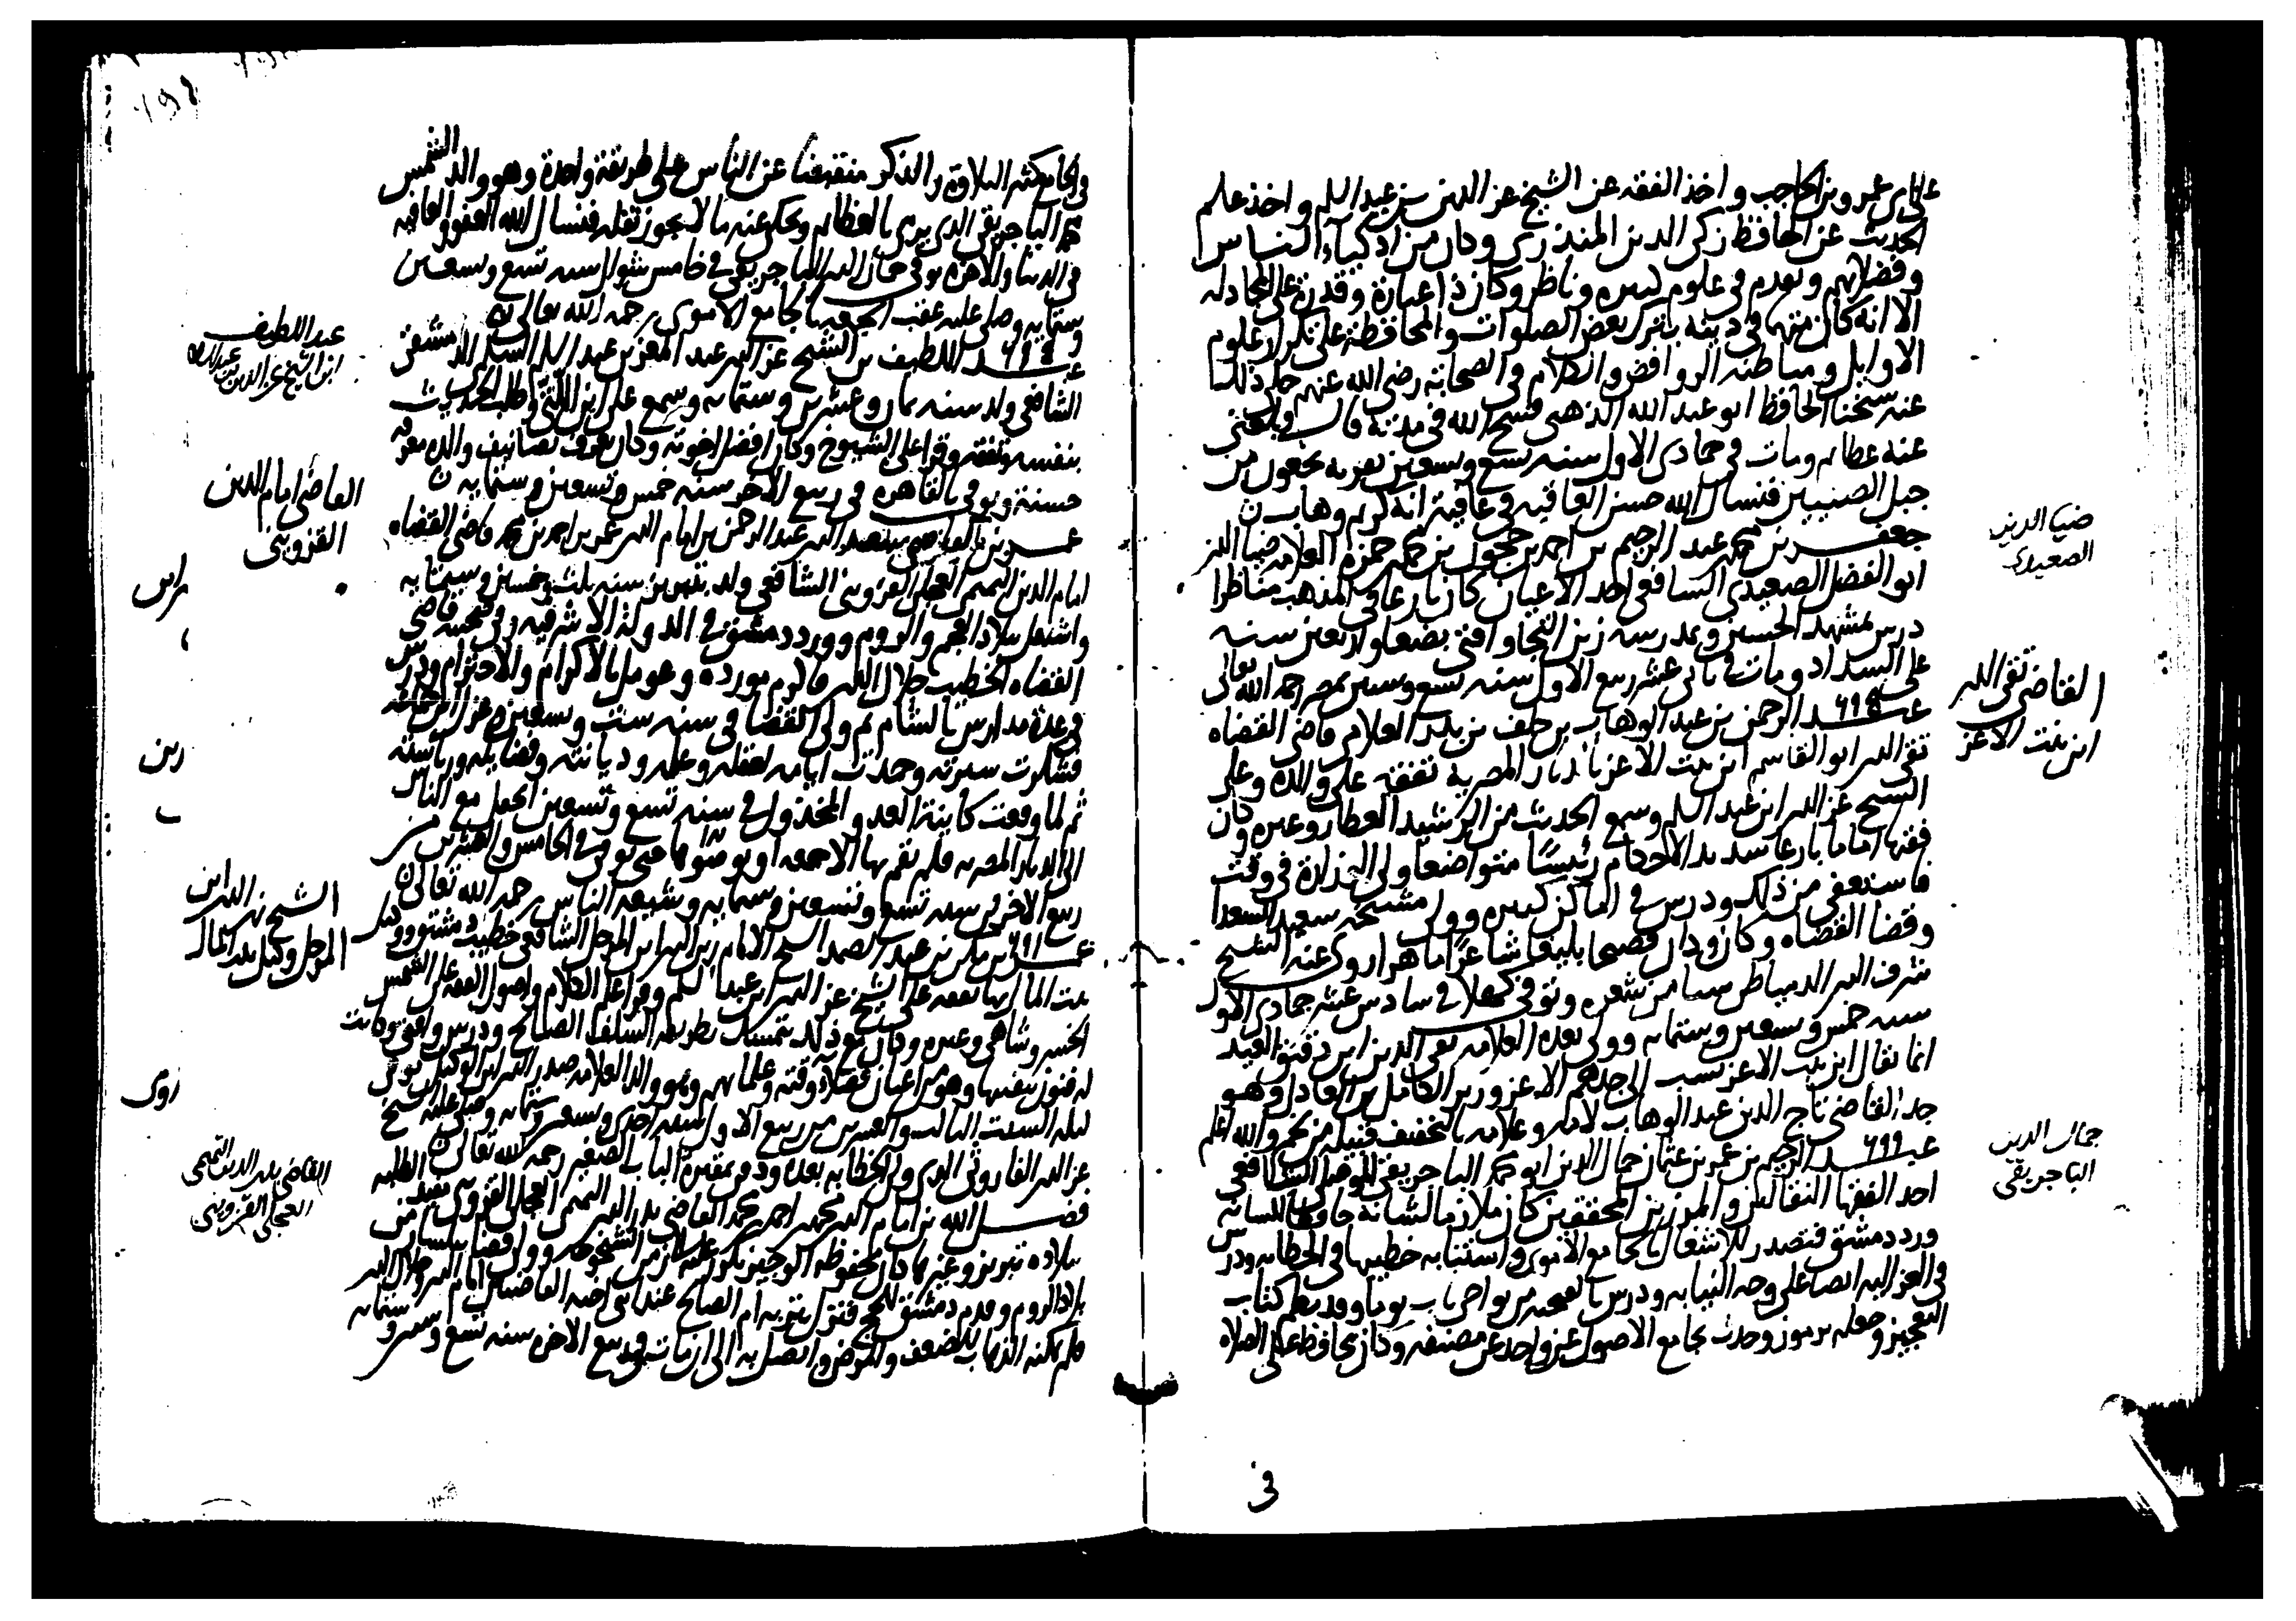 على ابى عمرو بن الحاجب واخذ الفقه عن الشيخ عز الدين بن عبد السلم واخذ علم
الحديث عن الحافظ زكى الدين المنذرى وكان من اذكياء الناس
وفضلائهم وتقدم فى علوم كثيره وناظر وكان ذا عبارة وقدرة على المجادله
الا انه كان متهما فى دينه بترك بعض الصلوات والمحافظة على تكرار علوم
الاوايل ومباطنه الروافض والكلام فى الصحابة رضى الله عنهم حكى ذلك
عنه شيخنا الحافظ ابو عبد الله الذهبى فسح الله فى مدته قال وبلغنى
عنه عظايم ومات فى جمادى الاول سنه تسع وسبعين بقريه بحعون من
جبل الضنيين فنسال الله حسن العاقبه فى عافية انه كريم وهاب
جعفر بن محمد عبد الرحيم بن احمد بن حجون بن محمد حمزه العلامه ضيا الدين
ابو الفضل الصعيدى الشافعى احد الاعيان كان بارعا فى المذهب مناظرا
درس بمشهد الحسين وبمدرسه زين التجار وافتى بضعا واربعين سنه
على السداد ومات فى ثانى عشر ربيع الاول سنه تسع وستين بمصر رحمه الله تعالى
عبد الرحمن بن عبد الوهاب بن خلف بن بدر العلامى قاضى القضاه
تقى الدين ابو القاسم ابن بنت الاعز بالديار المصرية تفقه على والده وعلى
الشيخ عز الدين ابن عبد السلم وسمع الحديث من الرشيد العطار وغيره وكان
فقيها اماما بارعا سديد الاحكام رئيسًا متواضعا ولى الوزارة فى وقت
فاستعفى من ذلك ودرس فى اماكن كبيره وولى مشيخه سعيد السعدا
وقضا القضاه وكان فصيحا بليغا شاعرًا ماهرا روى عنه الشيخ
شرف الدين الدمياطى شيا من شعره وتوفى كهلا فى سادس عشر جمادى الاول
سنه خمس وتسعين وستمايه وولى بعده العلامه تقى الدين ابن دقيق العيد
انما يقال ابن بنت الاعز نسب الى جدهم الاعز وزير الكامل بن العادل وهو
جد القاضى تاج الدين عبد الوهاب لامه وعلامه بالتخفيف قبيله من لخم والله اعلم
عبد الرحيم بن عمر بن عثمان جمال الدين ابو محمد الباجربقى الموصلى الشافعى
احد الفقها النقالين والمبرزين المحققين كان ملازما لشانه حافظا للسانه
ورد دمشق فتصدر للاشتغال بالجامع الاموى واستنابه خطيبها فى الخطابه ودرس
فى الغزاليه ايضا على وجه النيابه ودرس بالفتحيه من نواحى باب توما وقد نظم كتاب
التعجيز وعمله برموز وحدث بجامع الاصول عن واحد عن مصنفه وكان يحافظ على الصلاه
فى
ضيا الدين
الصعيدى
القاضى تقى الدين
ابن بنت الاعز
جمال الدين
الباجربقى
فى الجامع كثير التلاوة والذكر منقبضا عن الناس على طريقة واحدة وهو والد الشمس
محمد الباجربقى الذى يرمى بالعظايم ويحكى عنه ما لا يجوز نقله فنسال الله العفو والعافيه
فى الدنيا والاخره توفى جمال الدين الباجربقى فى خامس شوال سنه تسع وتسعين
وستمايه وصلى عليه عقب الجمعه بالجامع الاموى رحمه الله تعالى
عبد اللطيف بن الشيخ عز الدين عبد العزيز بن عبد السلم السلمى الدمشقى
الشافعى ولد سنه ثمان وعشرين وستمايه وسمع على ابن اللتى وطلب الحديث
بنفسه وتفقه وقرا على الشيوخ وكان افضل اخوته وكان يعرف تصانيف والده معرفه
حسنة وتوفى بالقاهره فى ربيع الاخر سنه خمس وتسعين وستمايه
عمر بن القاضى سعد الدين عبد الرحمن بن امام الدين عمر بن احمد بن محمد قاضى القضاه
امام الدين التميمى العجلى القزوينى الشافعى ولد بتبريز سنه ثلث وخمسين وستمايه
واشتغل ببلاد العجم والروم وورد دمشق فى الدولة الاشرفيه وفى صحبته قاضى
القضاه الخطيب جلال الدين فاكرم مورده وعومل بالاكرام والاحترام ودرس
فى عدة مدارس بالشام ثم ولى القضا فى سنه ست وتسعين وعزل
فشكرت سيرته وحمدت ايامه لعقله وعلمه وديانته وفضايله ورياسته
ثم لما وقعت كاينة العدو المخذول فى سنه تسع وتسعين انجفل مع الناس
الى الديار المصريه فلم يقم بها الا جمعه او توفى فى الخامس والعشرين من
ربيع الاخر سنه تسع وتسعين وستمايه وشيعه الناس رحمه الله تعالى
عمر بن مكى بن عبد الصمد الشيخ الامام زين الدين ابن المرحل الشافعى خطيب دمشق ووكيل
بيت المال بها تفقه على الشيخ عز الدين ابن عبد السلم وقرا علم الكلام واصول الفقه على الشمس
الخسروشاهى وغيره وكان مع ذلك يتمسك بطريقه السلف الصالح ودرس وافتى وكانت
له فنون يتقنها وهو من اعيان فضلاء وقته وعلمايهم وهو والد العلامه صدر الدين ابن الوكيل توفى
ليله السبت الثالث والعشرين من ربيع الاول سنه احدى وتسعين وستمايه وصلى عليه الشيخ
عز الدين الفاروثى الذى ولى الخطابه بعده ودفن بمقبرة الباب الصغير رحمه الله تعالى
فضل الله بن امام الدين محمد بن احمد بن محمد القاضى بدر الدين التميمى العجلى القزوينى مفيد الطلبه
ببلاده تبريز وغيرها كان محفوظه الوجيز يكرر عليه وولى قضا
بلاد الروم وقدم دمشق للحج فنزل بتربه ام الصالح عند ابنى اخيه القاضيين امام الدين وجلال الدين
فلم يمكنه الذهاب للضعف والمرض واتصل به الى ان مات فى ربيع الاخر سنه تسع وتسعين وستمايه
عبد اللطيف
ابن الشيخ عز الدين بن عبد السلم
القاضى امام الدين
القزوينى
الشيخ زين الدين
المرحل وكيل بيت المال
القاضى بدر الدين التميمى
العجلى القزوينى